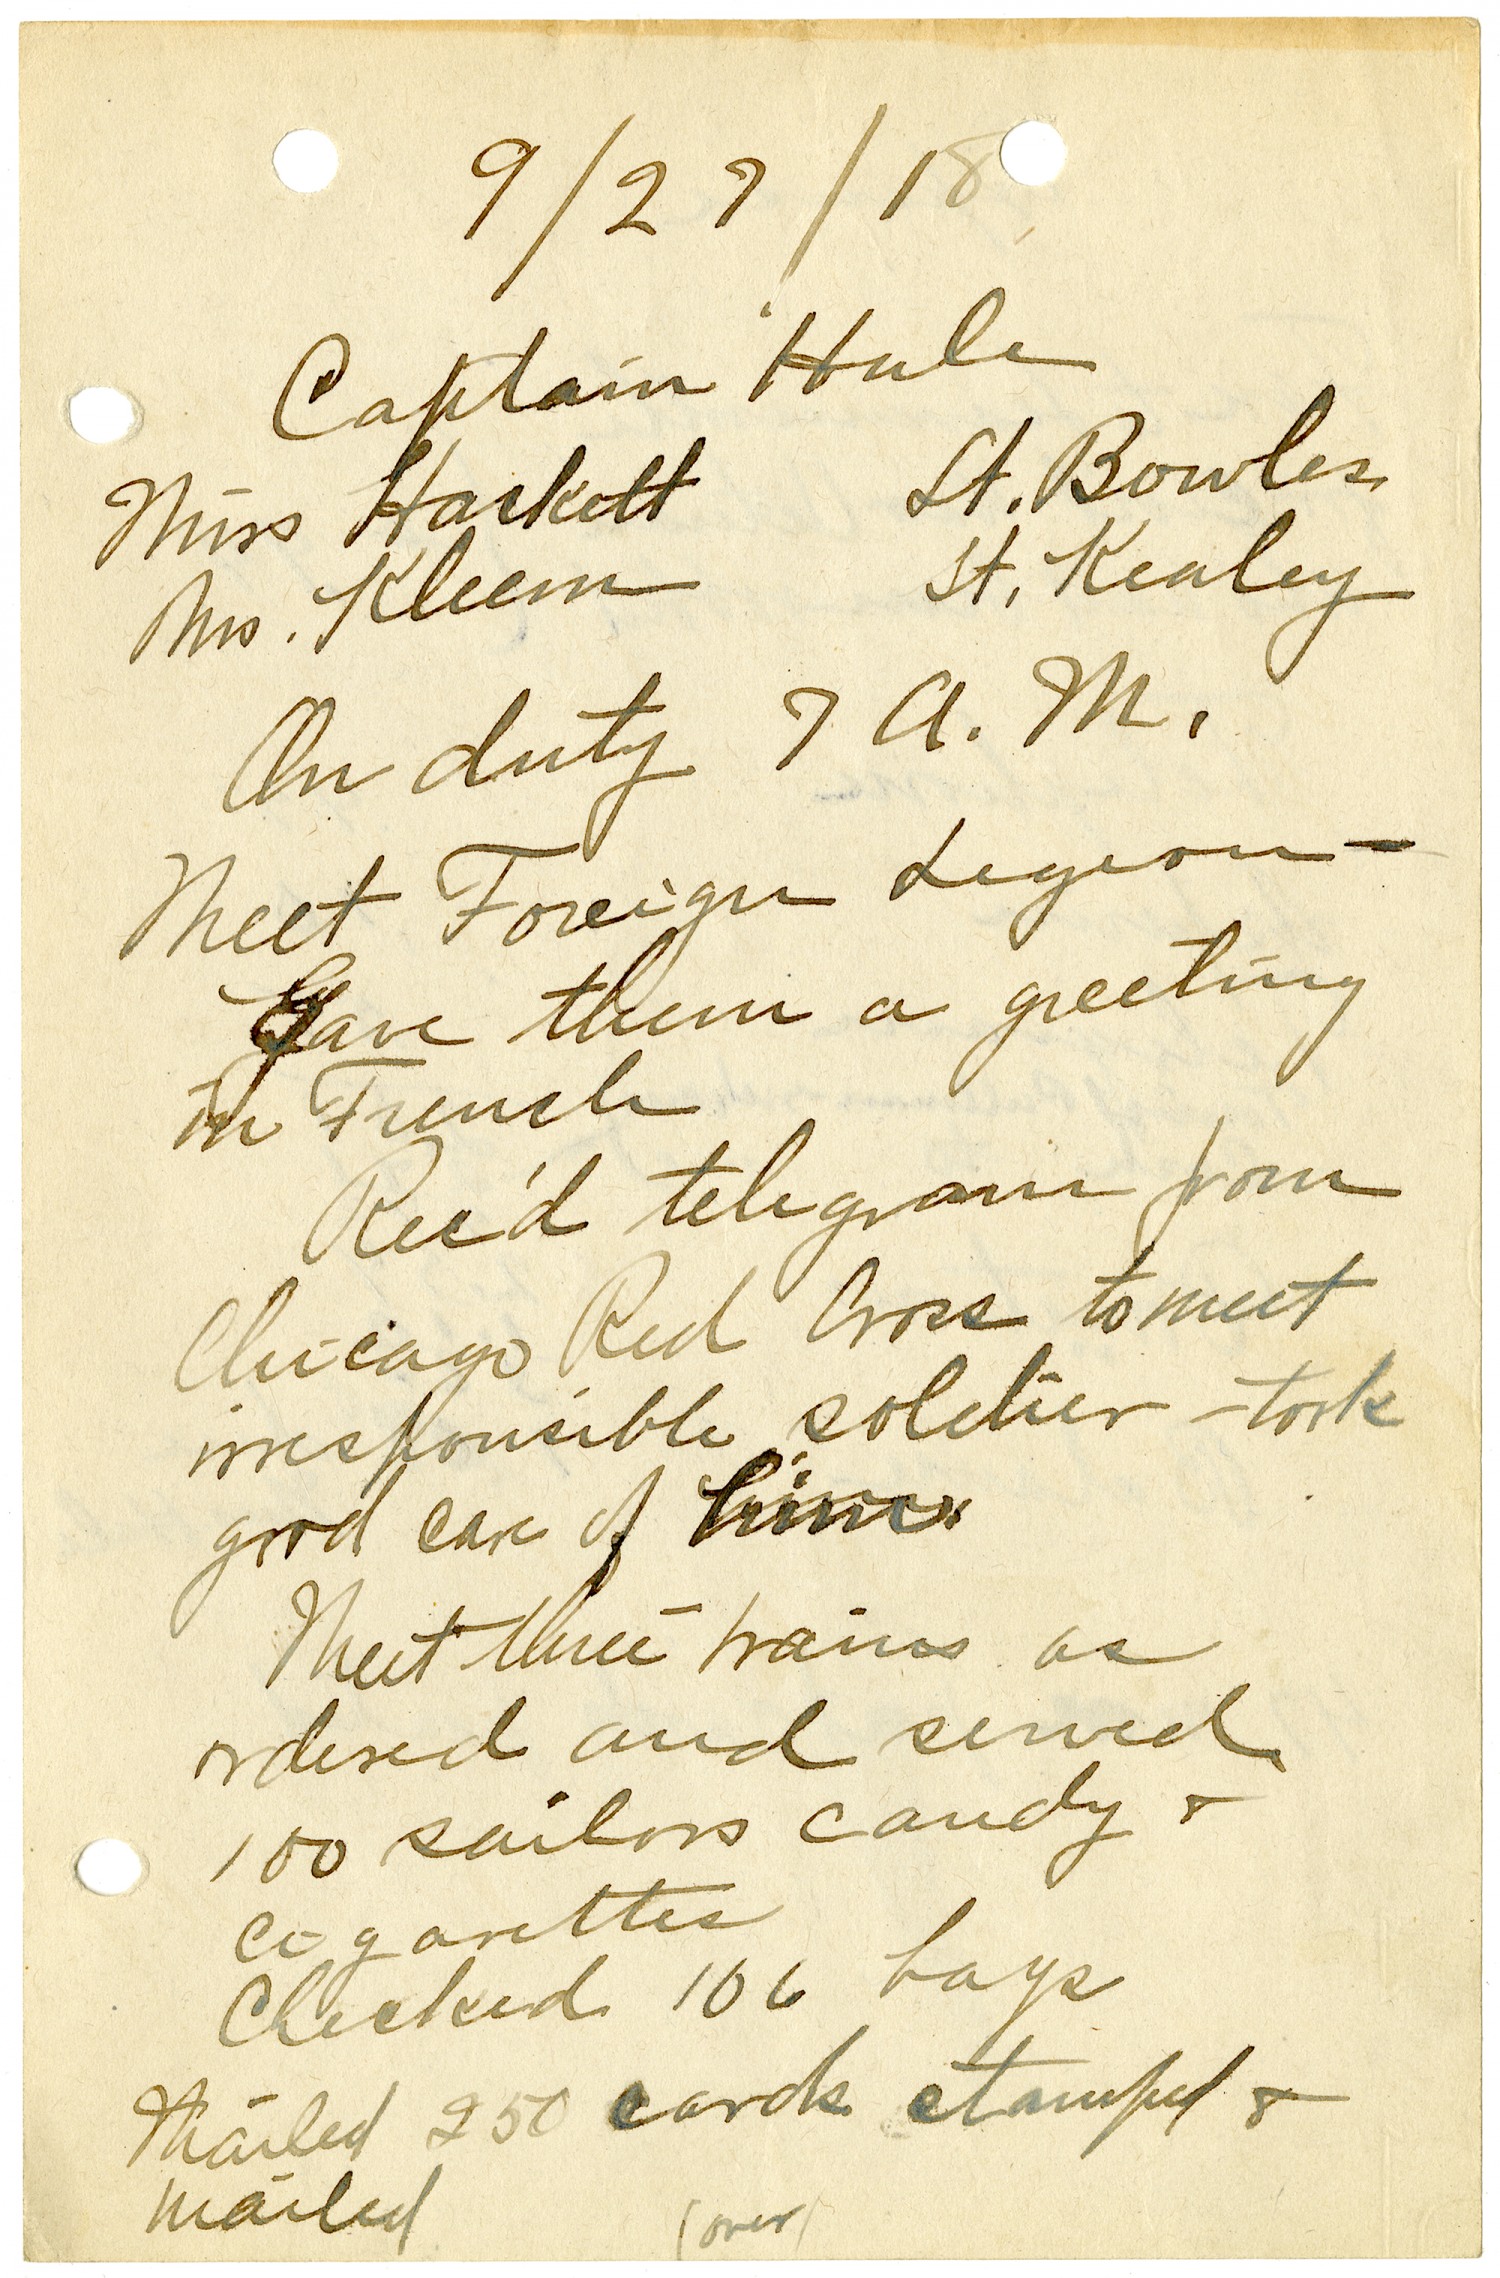 9/27/18
Captain Hale
Miss Haskett Lt. Bowles
Mrs. Kleem Lt. Kealey
On duty 7 A. M.
Meet Foreign Legion —
Gave them a greeting
in French
Rec'd telegram from
Chicago Red Cross to meet
irresponsible soldier – took
good care of him.
Meet three trains as
ordered and served
100 sailors candy &
cigarettes
Checked 106 bags
Mailed 250 cards stamped &
mailed
(over)